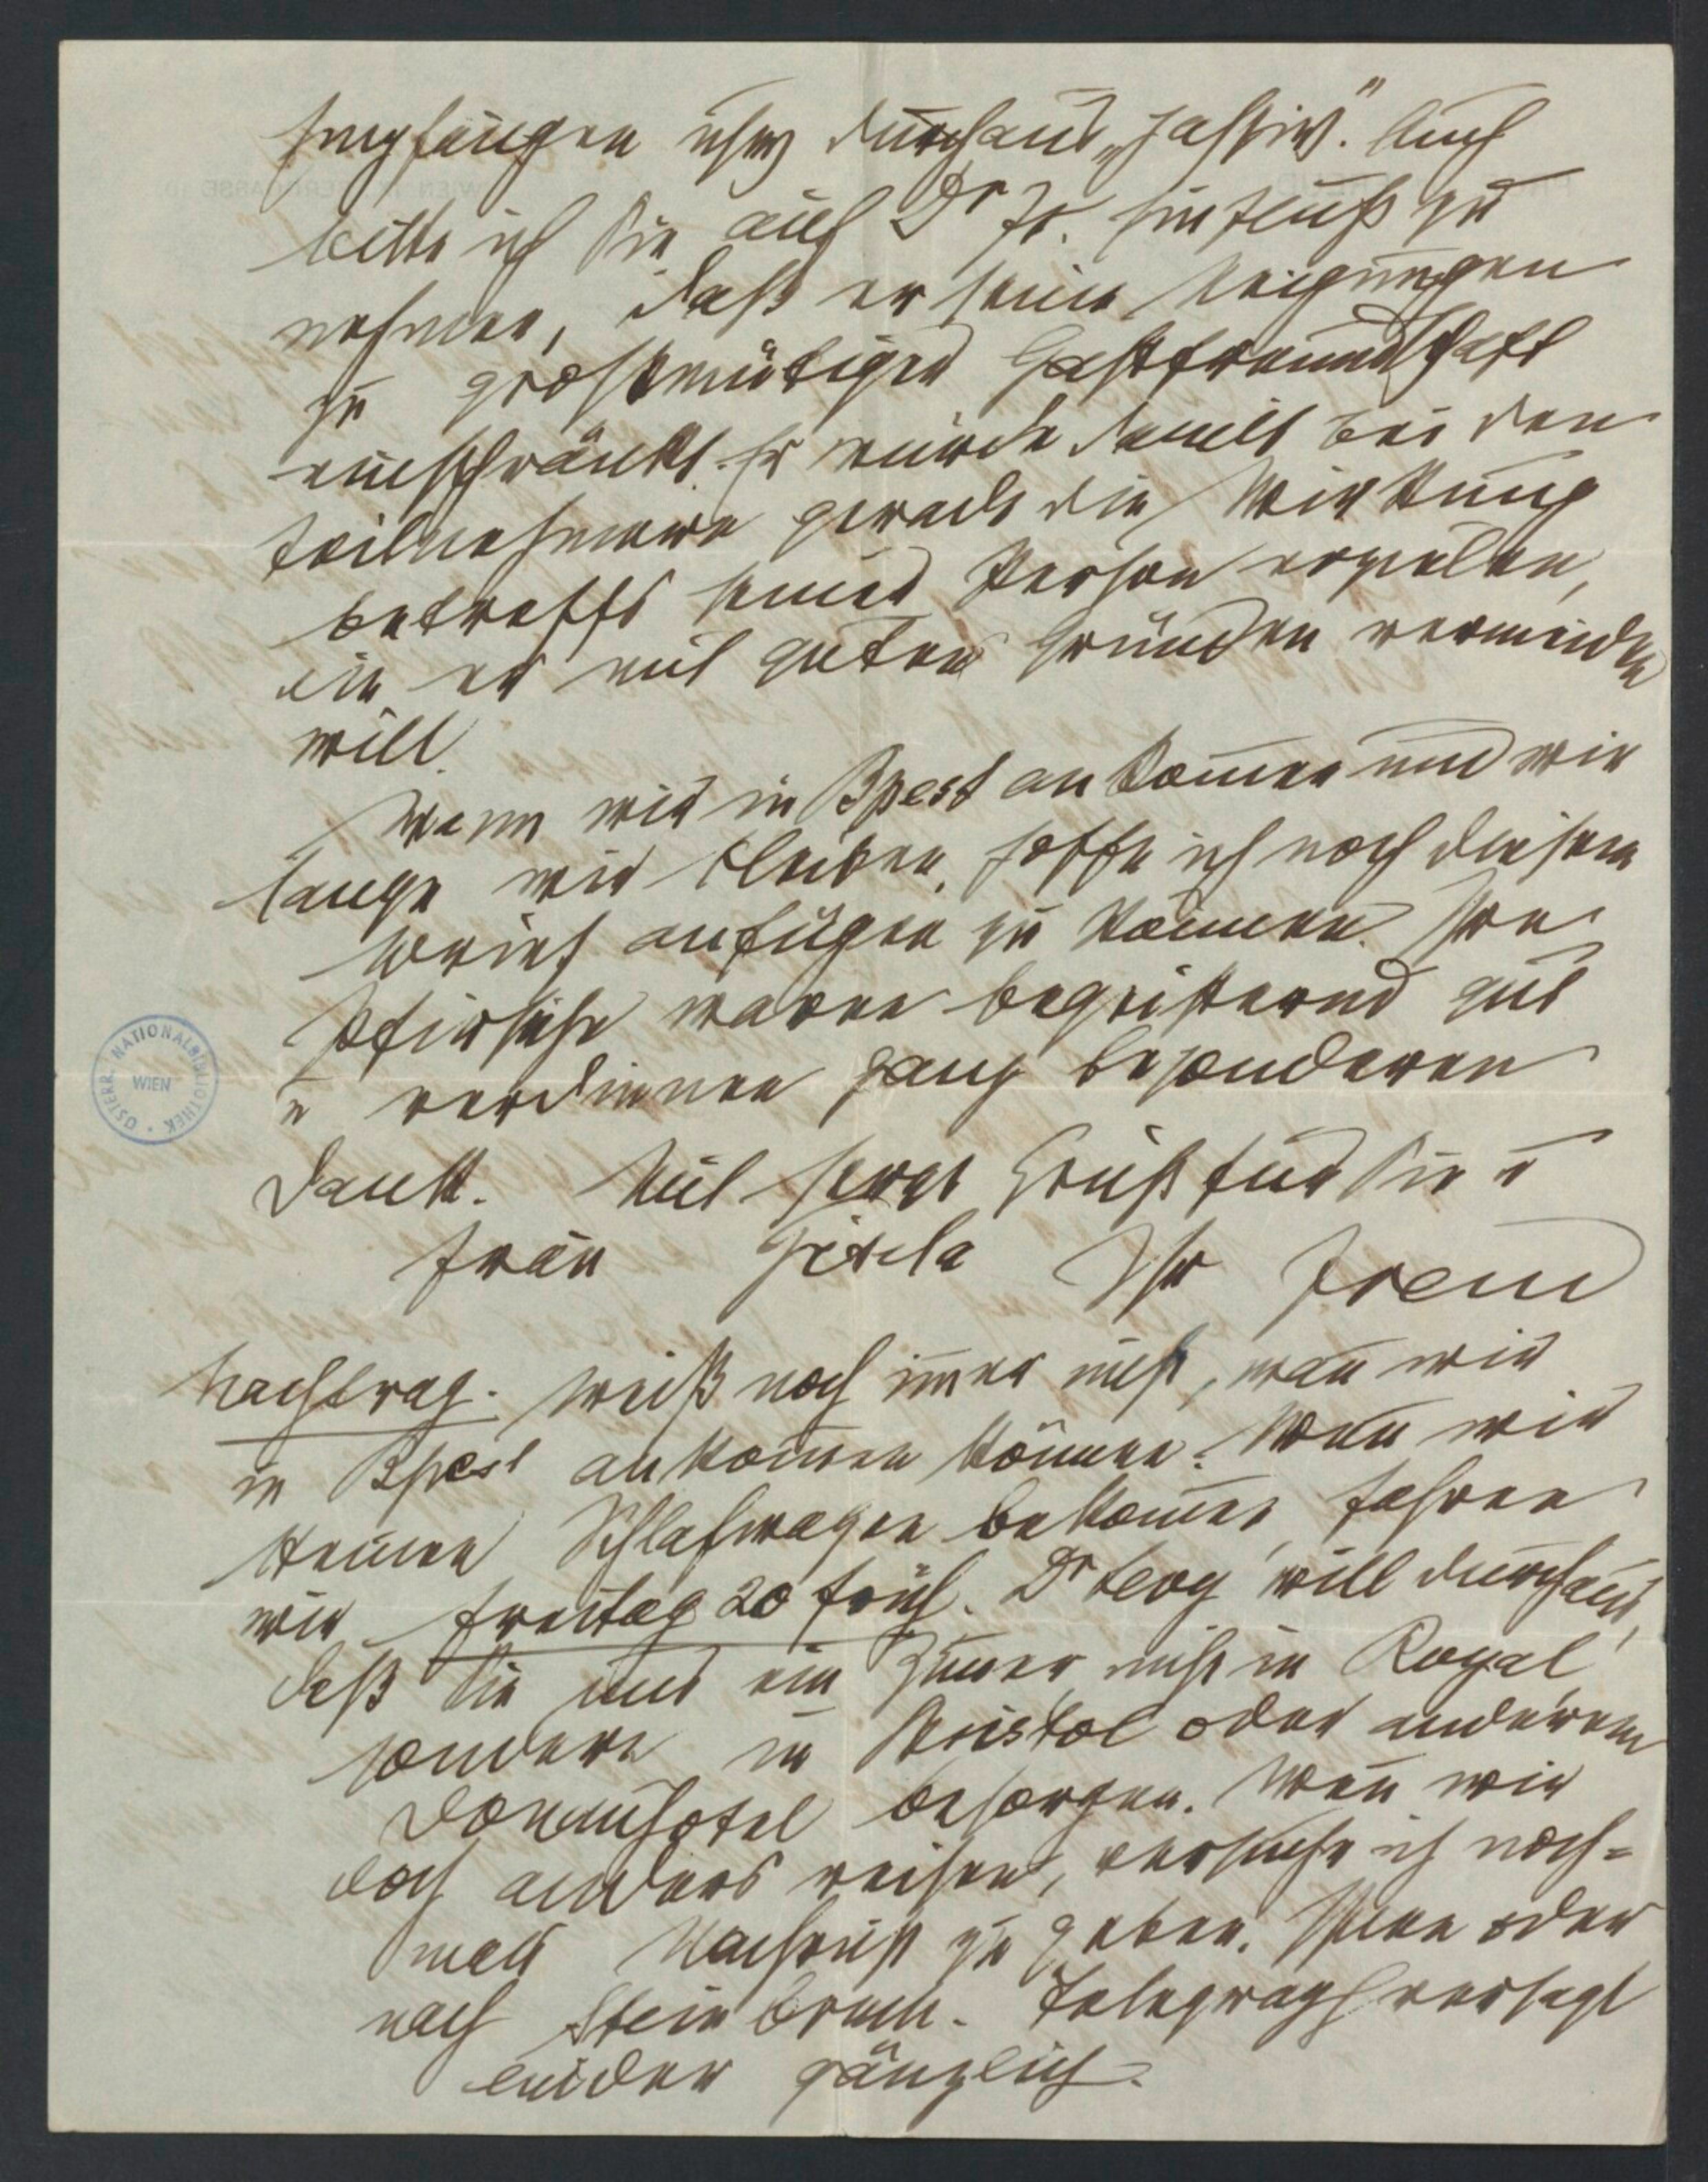 Empfängen usw durchaus „passiv“. Auch
bitte ich Sie auf Dr Fr. Einfluß zu
nehmen, daß er seine Neigungen
zu großmütiger Gastfreundschaft
einschränkt. Er würde damit bei den
Teilnehmern gerade die Wirkung
betreffs seiner Person erzielen,
die er mit guten Gründen vermeiden
will.
Wann wir in Bpest ankom̅en und wie
lange wir bleiben, hoffe ich noch diesem
Brief anfügen zu können. Ihre
Pfirsiche waren begeisternd gut
u verdienen ganz besonderen
Dank. Mit herzl Gruß für Sie u
Frau Gisela Ihr Freud
Nachtrag. Weiß noch im̅er nicht, wan̅ wir
in Bpest ankom̅en können. Wen̅ wir
keinen Schlafwagen bekom̅en, fahren
wir Freitag 20 früh. Dr Levy will durchaus,
daß Sie uns ein Zim̅er nicht in Royal,
sondern in Bristol oder anderem
Donauhotel besorgen. Wen̅ wir
doch anders reisen, versuche ich noch=
mals Nachricht zu geben. Ihnen oder
nach Steinbruch. Telegraph versagt
leider gänzlich.
ÖSTERR. NATIONALBIBLIOTHEK
WIEN